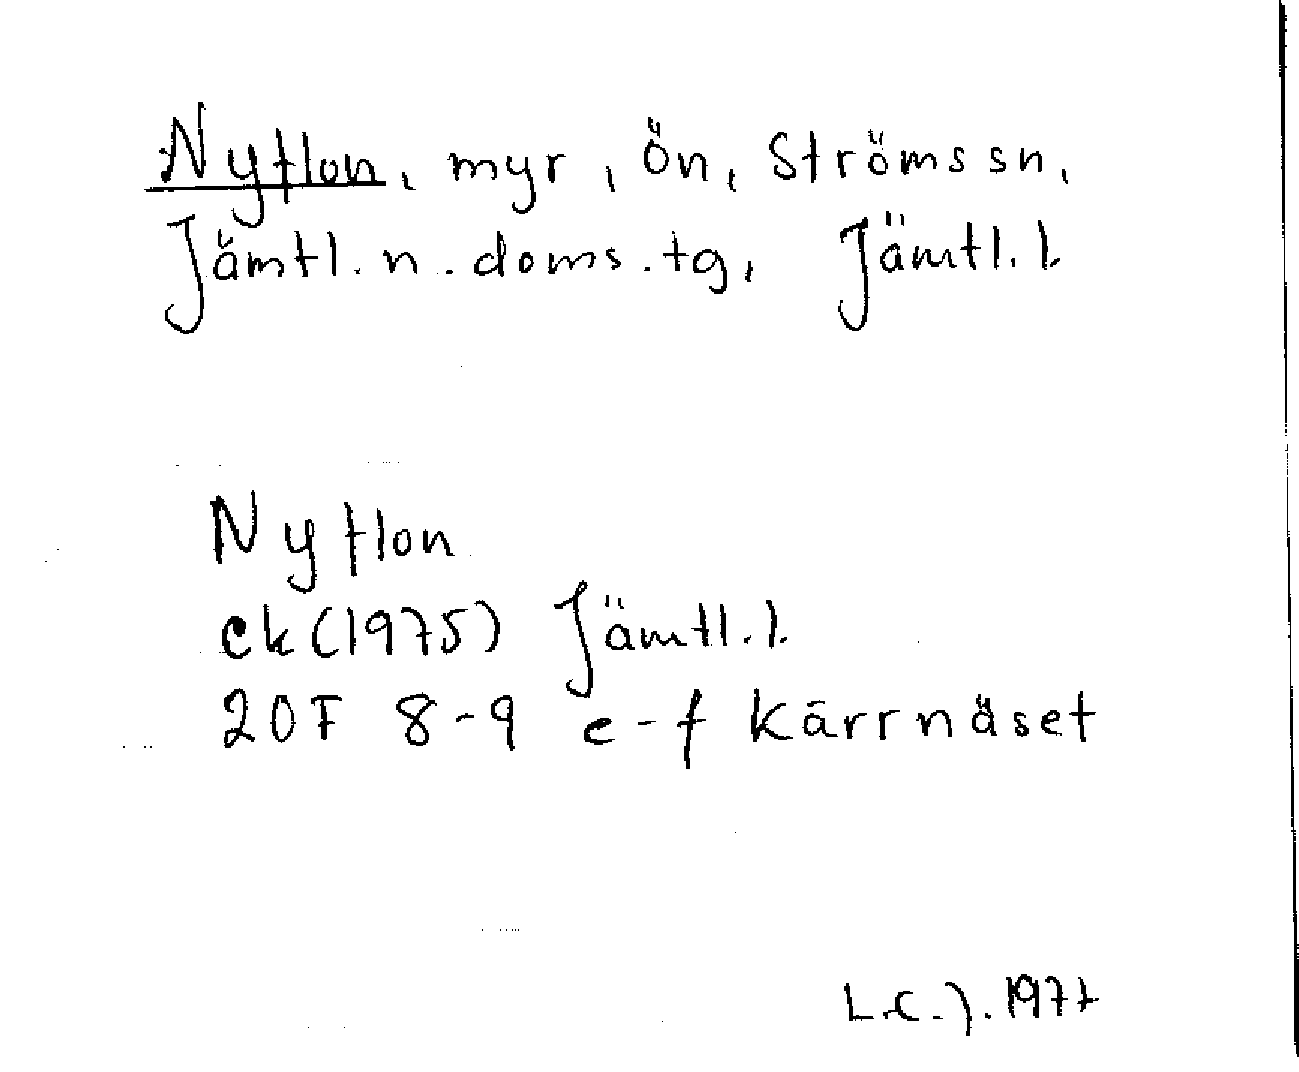 Nyflon, myr, Ön, Ströms sn,
Jämtl. n. doms. tg, Jämtl. l.
Nyflon
ek (1975) Jämtl. l.
20F 8-9 e-f Kärrnäset
L.C.J. 1977